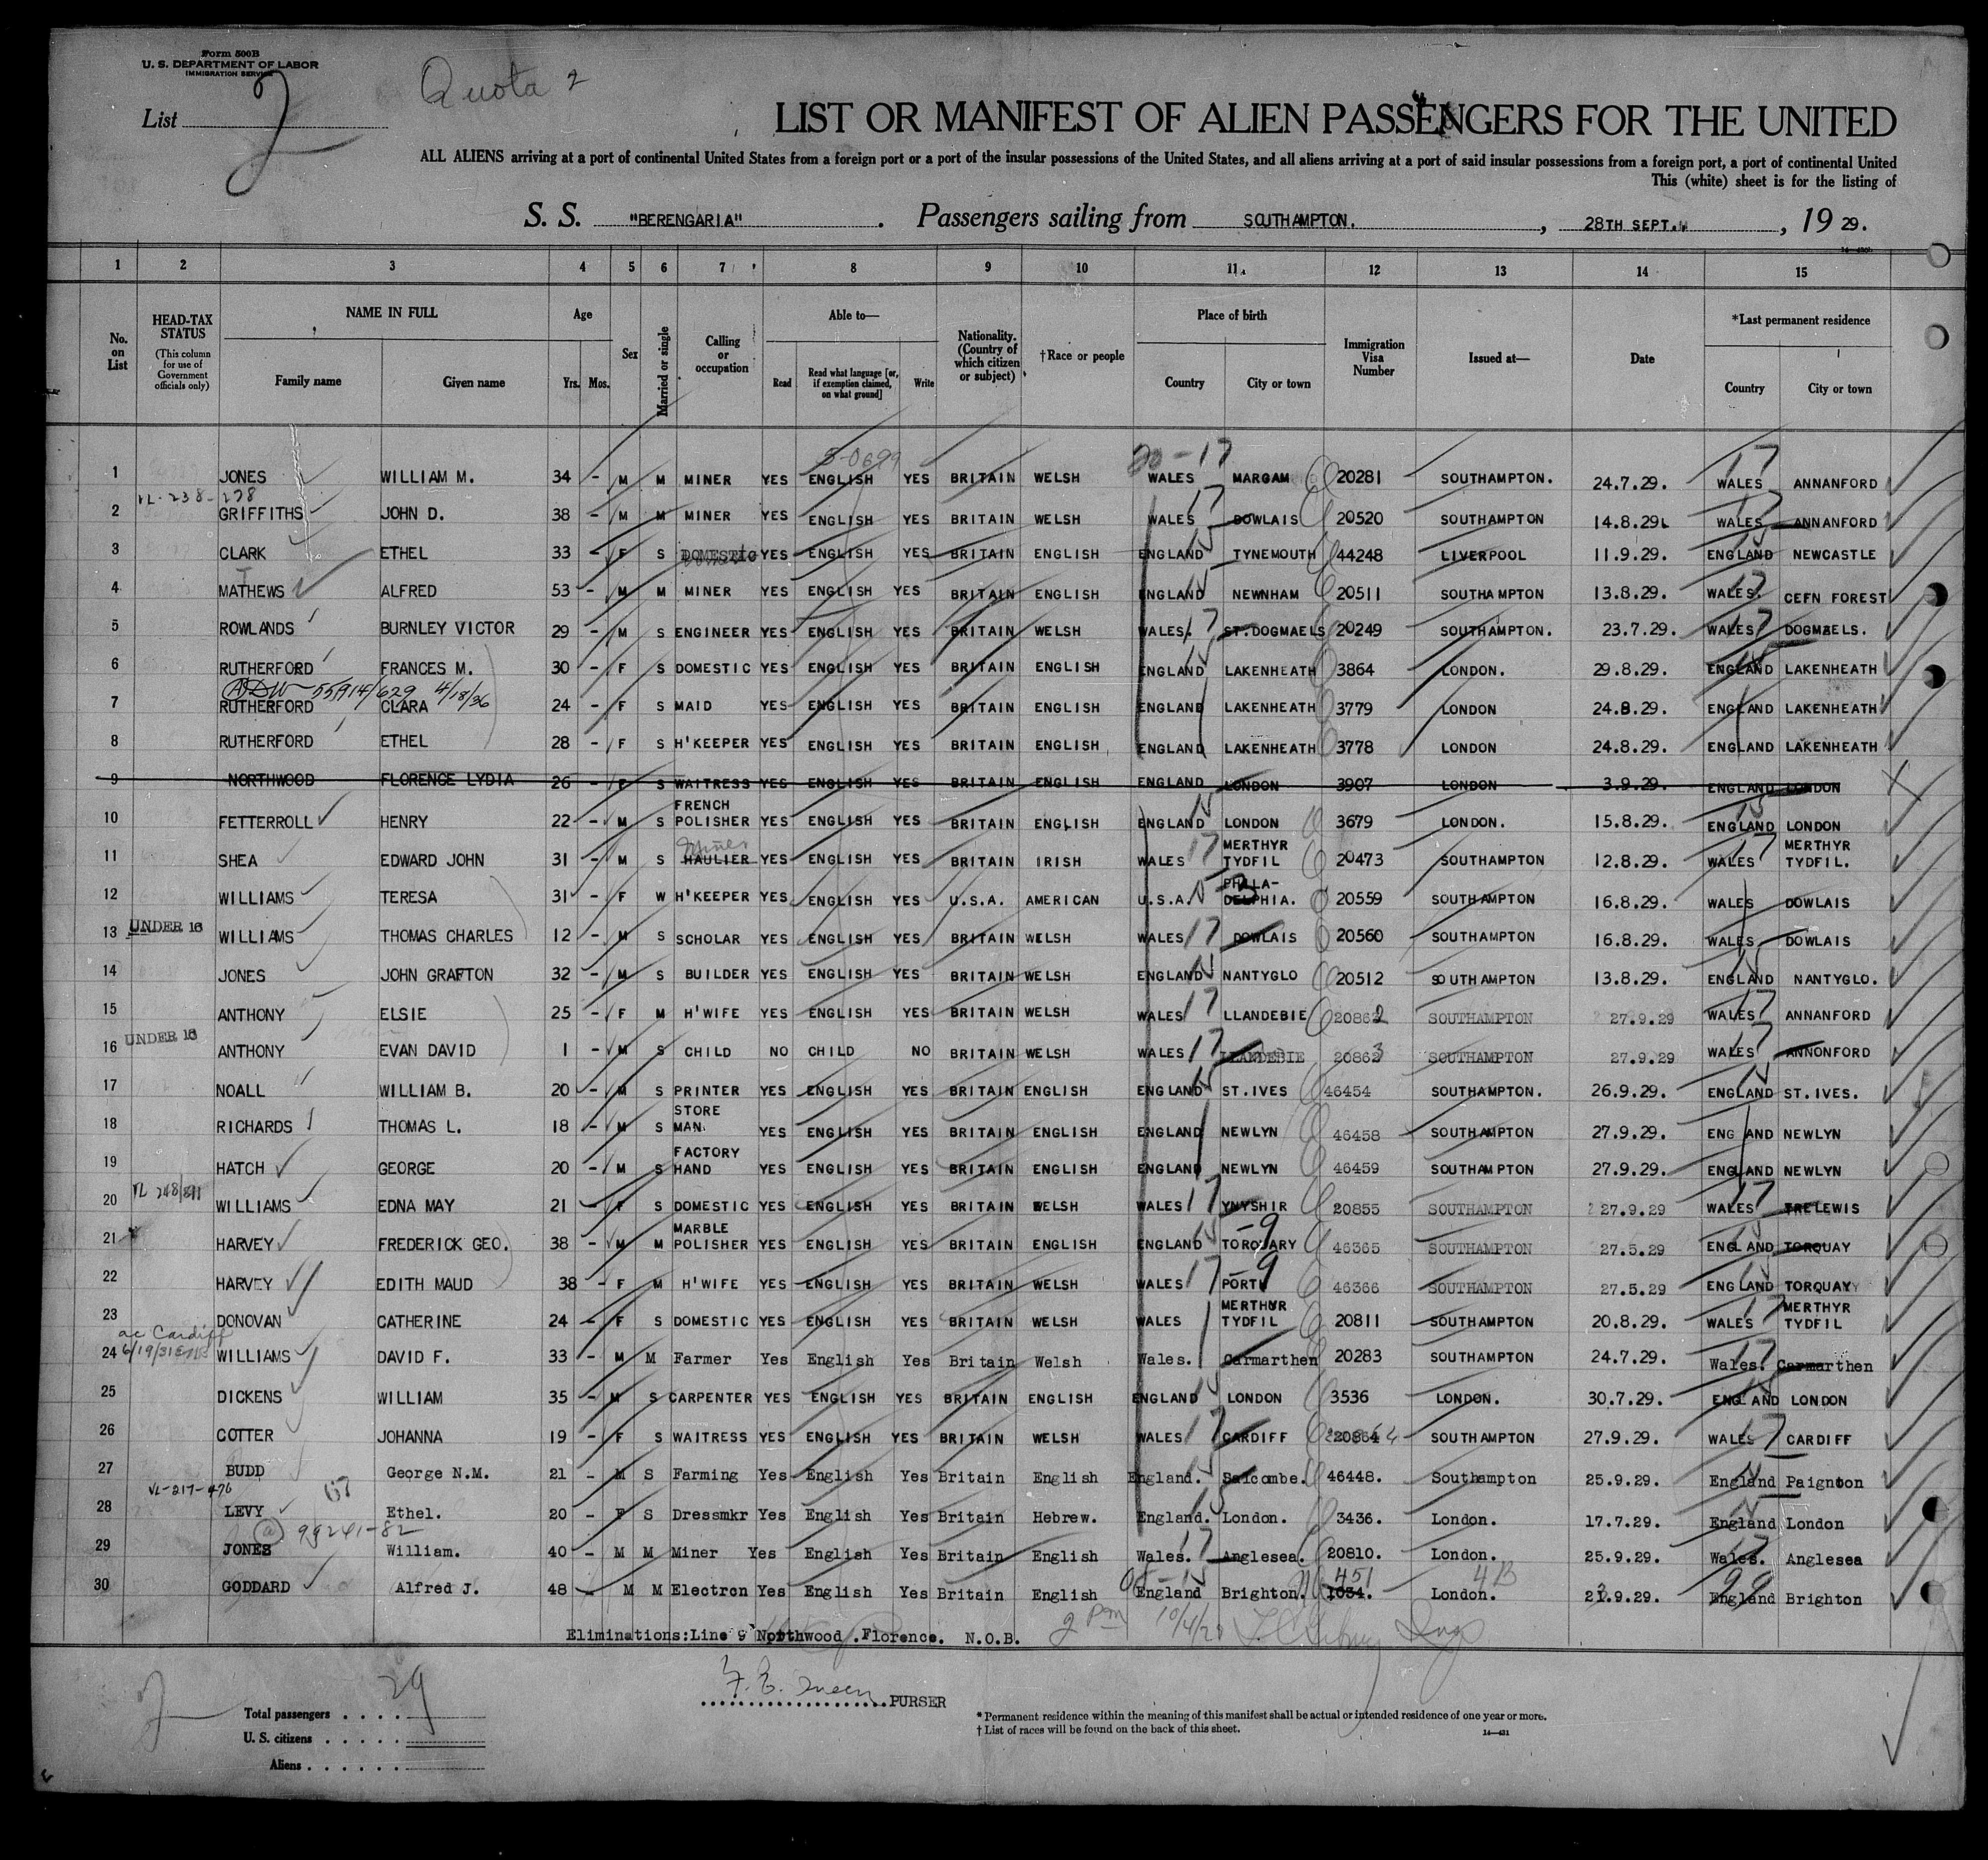 Form 500B
U. S. DEPARTMENT OF LABOR
IMMIGRATION SERVICE
Quota 2
List 2
LIST OR MANIFEST OF ALIEN PASSENGERS FOR THE UNITED
ALL ALIENS arriving at a port of continental United States from a foreign port or a port of the insular possessions of the United States, and all aliens arriving at a port of said insular possessions from a foreign port, a port of continental United
This (white) sheet is for the listing of
S. S. "BERENGARIA". Passengers sailing from SOUTHAMPTON. , 28TH SEPT. , 19 29.
1 2 3 4 5 6 7 8 9 10 11 12 13 14 15
No. on List
HEAD-TAX STATUS (This column for use of Government officials only)
NAME IN FULL Family name Given name
Age Yrs. Mos.
Sex
Married or single
Calling or occupation
Able to— Read Read what language [or, if exemption claimed, on what ground] Write
Nationality. (Country of which citizen or subject)
†Race or people
Place of birth Country City or town
Immigration Visa Number
Issued at—
Date
*Last permanent residence Country City or town
1 JONES WILLIAM M. 34 - M M MINER YES ENGLISH YES BRITAIN WELSH WALES MARGAM 20281 SOUTHAMPTON. 24.7.29. WALES ANNANFORD
VL-238-278
2 GRIFFITHS JOHN D. 38 - M M MINER YES ENGLISH YES BRITAIN WELSH WALES DOWLAIS 20520 SOUTHAMPTON 14.8.29. WALES ANNANFORD
3 CLARK ETHEL 33 - F S DOMESTIC YES ENGLISH YES BRITAIN ENGLISH ENGLAND TYNEMOUTH 44248 LIVERPOOL 11.9.29. ENGLAND NEWCASTLE
4 MATHEWS ALFRED 53 - M M MINER YES ENGLISH YES BRITAIN ENGLISH ENGLAND NEWNHAM 20511 SOUTHAMPTON 13.8.29. WALES. CEFN FOREST
5 ROWLANDS BURNLEY VICTOR 29 - M S ENGINEER YES ENGLISH YES BRITAIN WELSH WALES. ST.DOGMAELS 20249 SOUTHAMPTON. 23.7.29. WALES DOGMAELS.
6 RUTHERFORD FRANCES M. 30 - F S DOMESTIC YES ENGLISH YES BRITAIN ENGLISH ENGLAND LAKENHEATH 3864 LONDON. 29.8.29. ENGLAND LAKENHEATH
55914/629 4/18/36
7 RUTHERFORD CLARA 24 - F S MAID YES ENGLISH YES BRITAIN ENGLISH ENGLAND LAKENHEATH 3779 LONDON 24.8.29. ENGLAND LAKENHEATH
8 RUTHERFORD ETHEL 28 - F S H'KEEPER YES ENGLISH YES BRITAIN ENGLISH ENGLAND LAKENHEATH 3778 LONDON 24.8.29. ENGLAND LAKENHEATH
9 NORTHWOOD FLORENCE LYDIA 26 - F S WAITRESS YES ENGLISH YES BRITAIN ENGLISH ENGLAND LONDON 3907 LONDON 3.9.29. ENGLAND LONDON
10 FETTERROLL HENRY 22 - M S FRENCH POLISHER YES ENGLISH YES BRITAIN ENGLISH ENGLAND LONDON 3679 LONDON. 15.8.29. ENGLAND LONDON
11 SHEA EDWARD JOHN 31 - M S HAULIER Miner YES ENGLISH YES BRITAIN IRISH WALES MERTHYR TYDFIL 20473 SOUTHAMPTON 12.8.29. WALES MERTHYR TYDFIL.
12 WILLIAMS TERESA 31 - F W H'KEEPER YES ENGLISH YES U.S.A. AMERICAN U.S.A. PHILA-DELPHIA. 20559 SOUTHAMPTON 16.8.29. WALES DOWLAIS
UNDER 16
13 WILLIAMS THOMAS CHARLES 12 - M S SCHOLAR YES ENGLISH YES BRITAIN WELSH WALES DOWLAIS 20560 SOUTHAMPTON 16.8.29. WALES DOWLAIS
14 JONES JOHN GRAFTON 32 - M S BUILDER YES ENGLISH YES BRITAIN WELSH ENGLAND NANTYGLO 20512 SOUTHAMPTON 13.8.29. ENGLAND NANTYGLO.
15 ANTHONY ELSIE 25 - F M H'WIFE YES ENGLISH YES BRITAIN WELSH WALES LLANDEBIE 20862 SOUTHAMPTON 27.9.29 WALES ANNANFORD
UNDER 16
16 ANTHONY EVAN DAVID 1 - M S CHILD NO CHILD NO BRITAIN WELSH WALES LLANDEBIE 20863 SOUTHAMPTON 27.9.29 WALES ANNONFORD
17 NOALL WILLIAM B. 20 - M S PRINTER YES ENGLISH YES BRITAIN ENGLISH ENGLAND ST.IVES 46454 SOUTHAMPTON. 26.9.29. ENGLAND ST.IVES.
18 RICHARDS THOMAS L. 18 - M S STORE MAN. YES ENGLISH YES BRITAIN ENGLISH ENGLAND NEWLYN 46458 SOUTHAMPTON 27.9.29. ENG AND NEWLYN
19 HATCH GEORGE 20 - M S FACTORY HAND YES ENGLISH YES BRITAIN ENGLISH ENGLAND NEWLYN 46459 SOUTHAMPTON 27.9.29. ENGLAND NEWLYN
VL 248/811
20 WILLIAMS EDNA MAY 21 - F S DOMESTIC YES ENGLISH YES BRITAIN WELSH WALES YNYSHIR 20855 SOUTHAMPTON 27.9.29 WALES TRELEWIS
21 HARVEY FREDERICK GEO. 38 - M M MARBLE POLISHER YES ENGLISH YES BRITAIN ENGLISH ENGLAND TORQUARY 46365 SOUTHAMPTON 27.5.29 ENGLAND TORQUAY
22 HARVEY EDITH MAUD 38 - F M H'WIFE YES ENGLISH YES BRITAIN WELSH WALES PORTH 46366 SOUTHAMPTON 27.5.29 ENGLAND TORQUAY
23 DONOVAN CATHERINE 24 - F S DOMESTIC YES ENGLISH YES BRITAIN WELSH WALES MERTHYR TYDFIL 20811 SOUTHAMPTON 20.8.29. WALES MERTHYR TYDFIL
ac Cardiff 6/19/31
24 WILLIAMS DAVID F. 33 - M M Farmer Yes English Yes Britain Welsh Wales. Carmarthen 20283 SOUTHAMPTON 24.7.29. Wales. Carmarthen
25 DICKENS WILLIAM 35 - M S CARPENTER YES ENGLISH YES BRITAIN ENGLISH ENGLAND LONDON 3536 LONDON. 30.7.29. ENGLAND LONDON
26 COTTER JOHANNA 19 - F S WAITRESS YES ENGLISH YES BRITAIN WELSH WALES CARDIFF 20864 SOUTHAMPTON 27.9.29. WALES CARDIFF
27 BUDD George N.M. 21 - M S Farming Yes English Yes Britain English England. Salcombe. 46448. Southampton 25.9.29. England Paignton
VL-217-476
28 LEVY Ethel. 20 - F S Dressmkr Yes English Yes Britain Hebrew. England. London. 3436. London. 17.7.29. England London
99241-82
29 JONES William. 40 - M M Miner Yes English Yes Britain English Wales. Anglesea. 20810. London. 25.9.29. Wales. Anglesea
30 GODDARD Alfred J. 48 - M M Electron Yes English Yes Britain English England Brighton. 1034. 451 London. 9.29. England Brighton
Eliminations:Line 9 Northwood .Florence. N.O.B.
2 pm 10/4/29
PURSER
Total passengers . . . . 29
U. S. citizens . . . . .
Aliens . . . . . .
* Permanent residence within the meaning of this manifest shall be actual or intended residence of one year or more.
† List of races will be found on the back of this sheet.
14—431